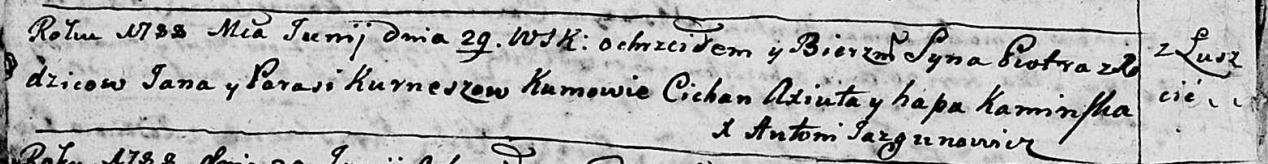 Roku 1788 Mca Junij dnia 29. WSK: ochrzciłem y Bierzm Syna Piotra z Ro
dzicow Jana y Parasi Kurneszow Kumowie Cichan Aziuta y hapa Kaminska
X Antoni Jazgunowicz
z Lusz
cic
Roku 1788 dnia